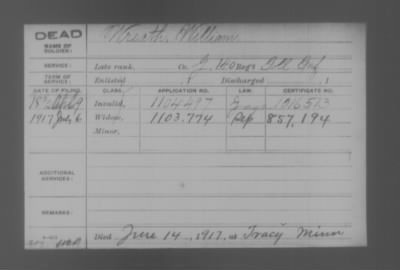 DEAD
NAME OF SOLDIER:
Wreath, William
SERVICE:
Late rank, Co. I, 140 Reg't Ill Inf
TERM OF SERVICE:
Enlisted , 1 Discharged , 1
DATE OF FILING. CLASS. APPLICATION NO. LAW. CERTIFICATE NO.
Invalid, 1104497 1016513
1917 July 6 Widow, 1103.774 857,194
Minor,
ADDITIONAL SERVICES:
REMARKS:
Died June 14, 1917, at Tracy Minn